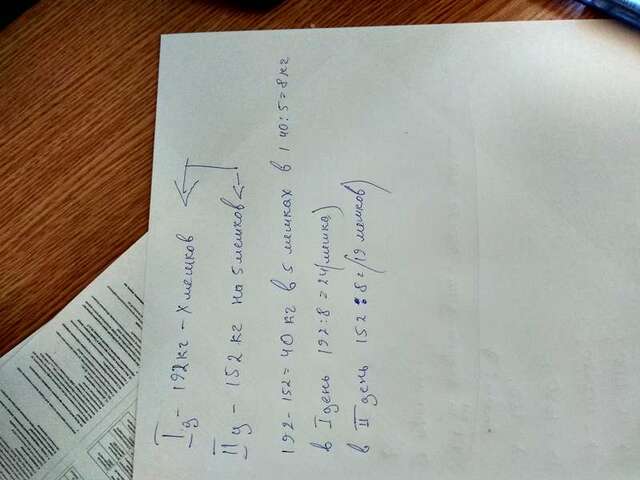 I д - 192кг - х мешков
II д - 152 кг на 5 мешков <
192-152=40 кг в 5 мешках в 1 40:5=8кг
в I день 192:8=24(мешка)
в II день 152:8=(19 мешков)